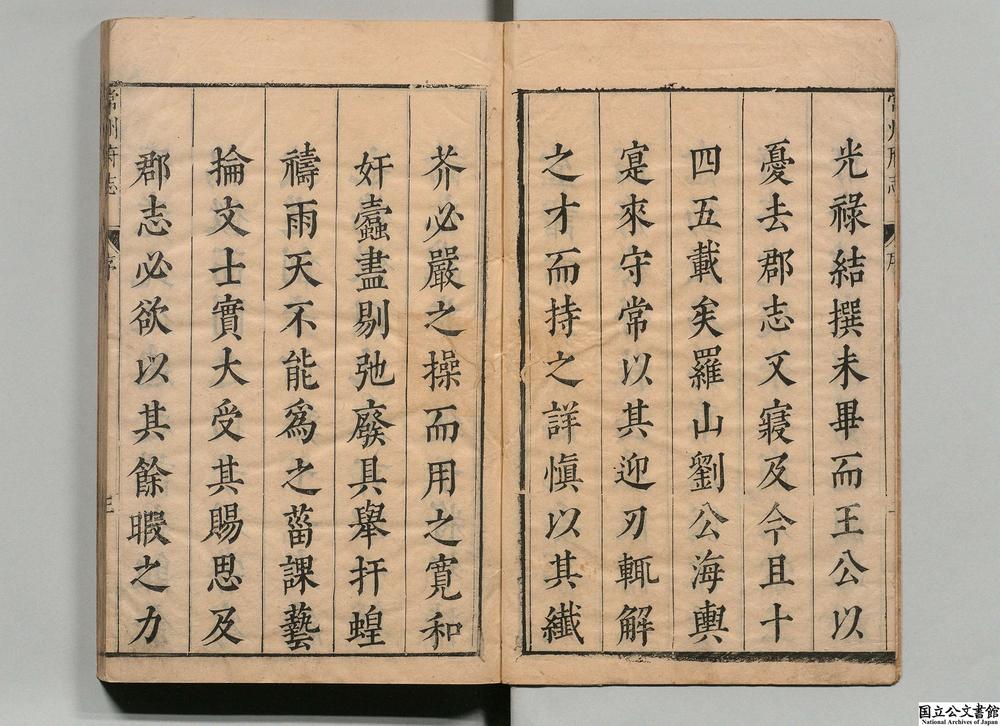 光祿結撰未畢而王公以
憂去郡志又寢及今且十
四五載矣羅山劉公海輿
寔來守常以其迎刃輒解
之才而持之詳慎以其纖
芥必嚴之操而用之寬和
奸蠧盡剔弛廢具舉扞蝗
禱雨天不能爲之菑課藝
掄文士實大受其賜思及
郡志必欲以其餘暇之力
常州府志
序
三
国立公文書館
National Archives of Japan